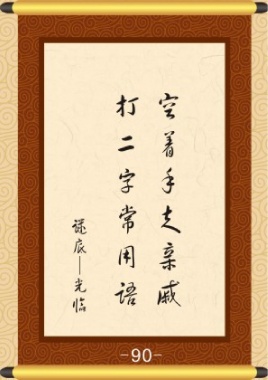 空着手走亲戚
打二字常用语
谜底—光临
-90-